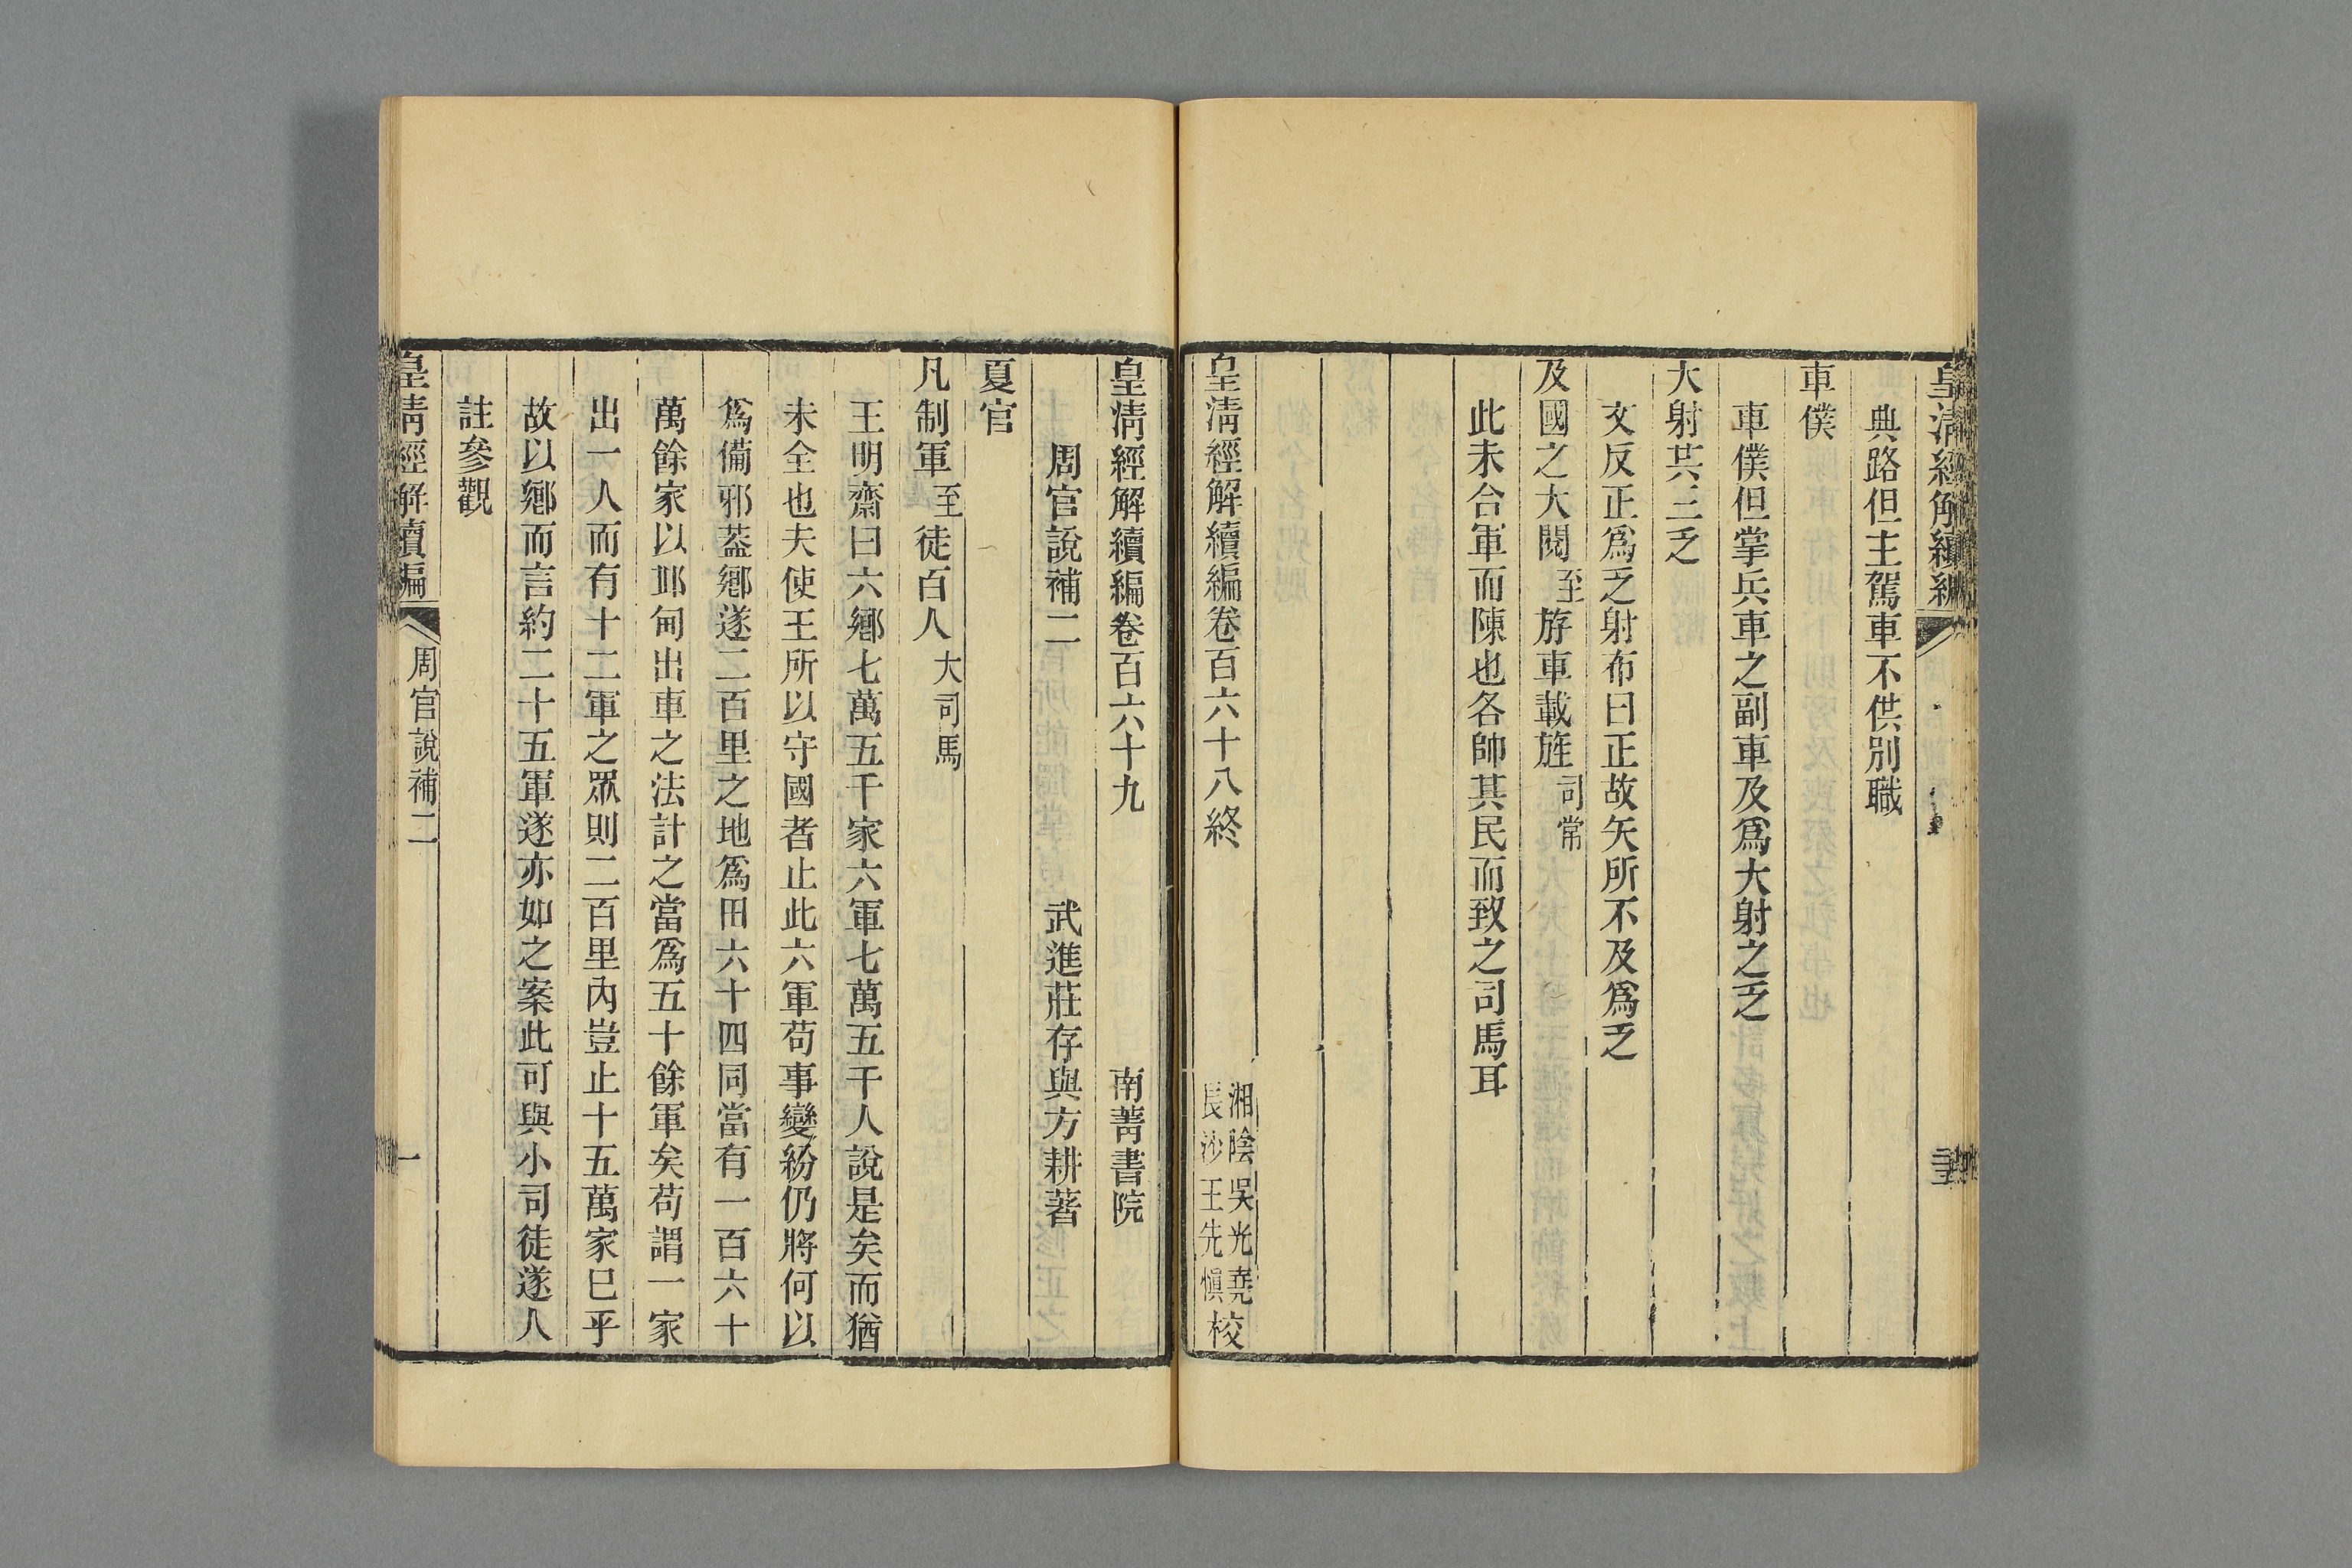 皇清經解續編
典路但主駕車不供別職
車僕
車僕但掌兵車之副車及爲大射之乏
大射共三乏
文反正爲乏射布曰正故矢所不及爲乏
及國之大閱至斿車載旌司常
此未合軍而陳也各帥其民而致之司馬耳
皇淸經解續編卷百六十八終
湘陰吳光堯
長沙王先愼校
皇淸經解續編卷百六十九
南菁書院
周官說補二
武進莊存與方耕著
夏官
凡制軍至徒百人大司馬
王明齋曰六鄕七萬五千家六軍七萬五千人說是矣而猶
未全也夫使王所以守國者止此六軍苟事變紛仍將何以
爲備邪蓋鄕遂二百里之地爲田六十四同當有一百六十
萬餘家以邱甸出車之法計之當爲五十餘軍矣苟謂一家
出一人而有十二軍之眾則二百里內豈止十五萬家巳乎
故以鄕而言約二十五軍遂亦如之案此可與小司徒遂人
註參觀
皇淸經解續編
周官說補二
一